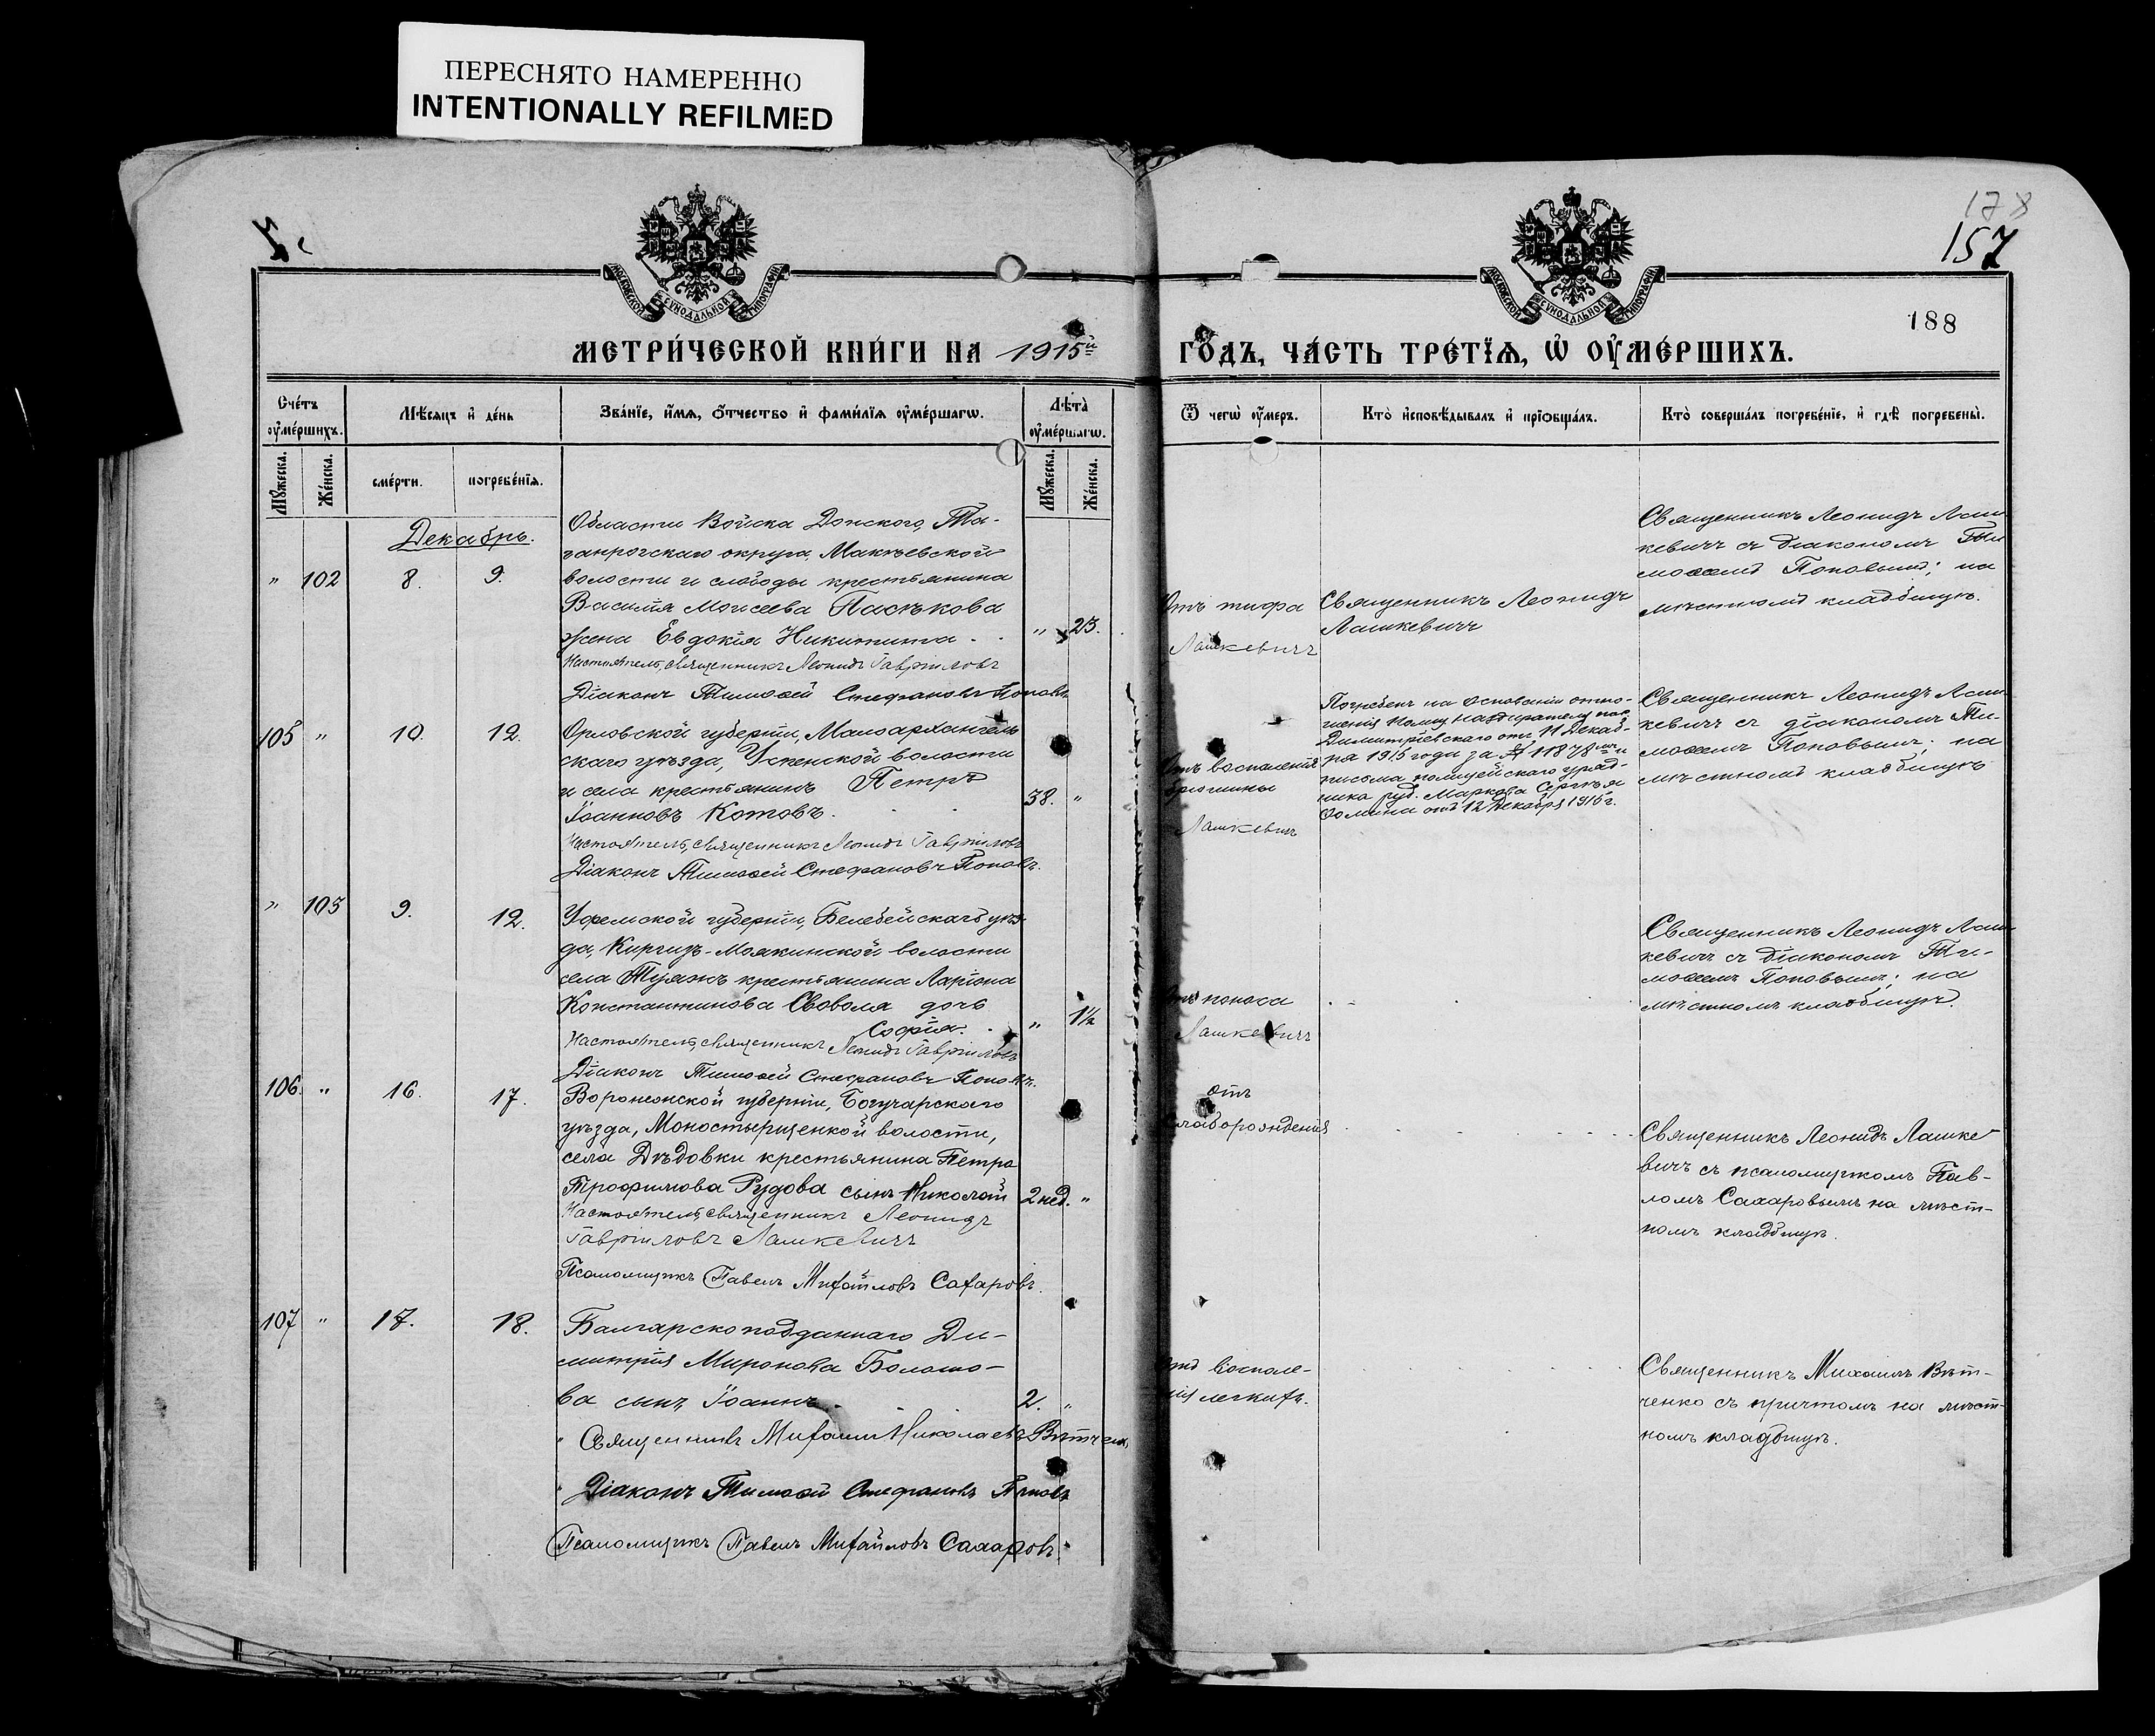 ПЕРЕСНЯТО НАМЕРЕННО
INTENTIONALLY REFILMED
178
157
188
МОСКОВСКОЙ СѴНОДАЛЬНОЙ ТИПОГРАФІИ
МОСКОВСКОЙ СѴНОДАЛЬНОЙ ТИПОГРАФІИ
МЕТРИ́ЧЕСКОЙ КНИ́ГИ НА 1915й
ГО́ДЪ, ЧА́СТЬ ТРЕ́ТІѦ, Ѡ҆ ОУ҆МЕ́РШИХЪ.
Сче́тъ оу҆ме́ршихъ.
Мѣ́сяцъ и҆ де́нь
Зва́нїе, и҆́мя, ѻ҆́тчество и҆ фами́лїя оу҆ме́ршагѡ.
Лѣта̀ оу҆ме́ршагѡ.
Ѿ чегѡ̀ оу҆́меръ.
Кто̀ и҆сповѣ́дывалъ и҆ прїѡбща́лъ.
Кто̀ соверша́лъ погребе́нїе, и҆ гдѣ̀ погребены̀.
Мꙋ́жеска.
Же́нска.
сме́рти.
погребе́нїя.
Мꙋ́жеска.
Же́нска.
Декабрь.
" 102 8. 9.
Области Войска Донского, Та-
ганрогскаго округа, Макѣевской
волости и слободы крестьянина
Василія Моисеева Пасѣкова
жена Евдокія Никитина . . " 23.
Настоятель, священникъ Леонидъ Гавріиловъ
Діаконъ Тимоѳей Стефановъ Поповъ
Отъ тифа
Лашкевичъ
Священникъ Леонидъ
Лашкевичъ
Священникъ Леонидъ Лаш
кевичъ съ діакономъ Ти
моѳеемъ Поповымъ; на
мѣстномъ кладбищѣ.
105 " 10. 12.
Орловской губерніи, Малоархангель
скаго уѣзда, Успенской волости
и села крестьянинъ Петръ
Іоанновъ Котовъ. 38. "
Настоятель, священникъ Леонидъ Гавріиловъ
Діаконъ Тимоѳей Стефановъ Поповъ.
Отъ воспаленія
брюшины
Лашкевичъ
Погребенъ на основаніи отно-
шенія Полиц. Надзирателя пос.
Димитріевскаго отъ 11 Декаб-
ря 1915 года за № 11878 и
письма полицейскаго уряд-
ника руд. Маркова Сергѣя
Ѳомина отъ 12 Декабря 1915 г.
Священникъ Леонидъ Лаш-
кевичъ съ діакономъ Ти-
моѳеемъ Поповымъ; на
мѣстномъ кладбищѣ
" 103 9. 12.
Уфимской губерніи, Белебейскаго уѣз-
да, Киргизъ-Міякинской волости
села крестьянина Ларіона
Константинова Своволя дочь
Софія. . " 1½
Настоятель, священникъ Леонидъ Гавріиловъ
Діаконъ Тимоѳей Стефановъ Поповъ.
Отъ поноса
Лашкевичъ
Священникъ Леонидъ Лаш-
кевичъ съ діакономъ Ти-
моѳеемъ Поповымъ; на
мѣстномъ кладбищѣ.
106. " 16. 17.
Воронежской губерніи, Богучарскаго
уѣзда, Моностырщенской волости,
села Дѣдовки крестьянина Петра
Трофимова Рудова сынъ Николай 2 нед. "
Настоятель, священникъ Леонидъ
Гавріиловъ Лашкевичъ
Псаломщикъ Павелъ Михайловъ Сахаровъ.
отъ
слаборожденія
Священникъ Леонидъ Лашке
вичъ съ псаломщикомъ Пав-
ломъ Сахаровымъ на мѣст-
номъ кладбищѣ.
107 " 17. 18.
Балгарскоподданнаго Ди-
митрія Миронова Болото-
ва сынъ Іоаннъ. 2. "
Священникъ Михаилъ Николаевъ
Діаконъ Тимоѳей Стефановъ Поповъ
Псаломщикъ Павелъ Михайловъ Сахаровъ
Отъ воспале-
нія легкихъ.
Священникъ Михаилъ Вѣт-
ченко съ причтомъ на мѣст-
номъ кладбищѣ.